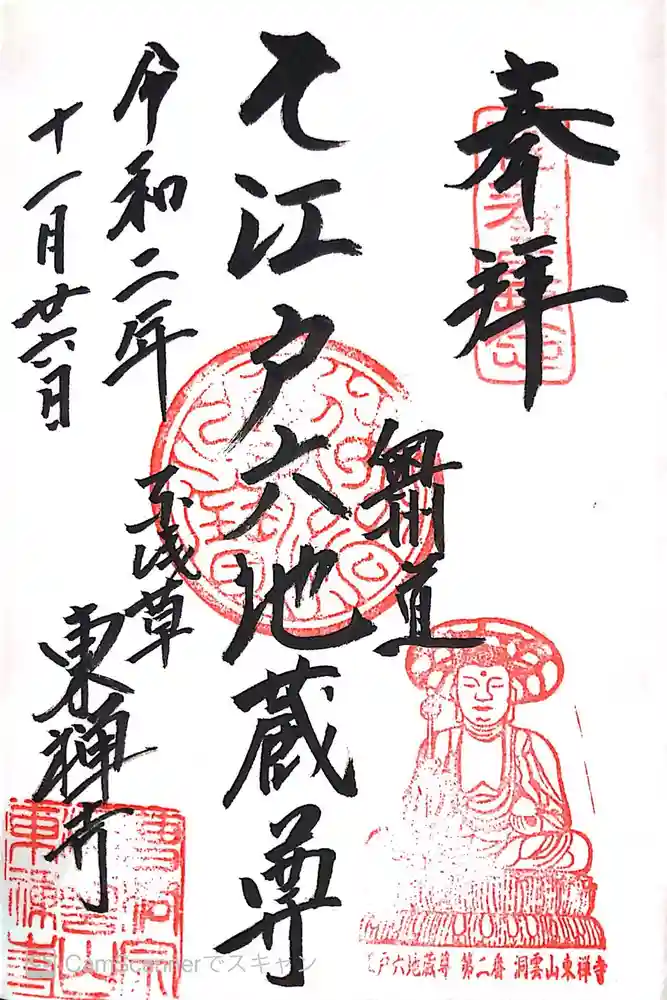 奉拝
奥州道
江戸六地蔵尊
令和二年
十一月廿六日
浅草
東禅寺
江戸六地蔵尊 第二番 洞雲山東禅寺
CamScannerでスキャン